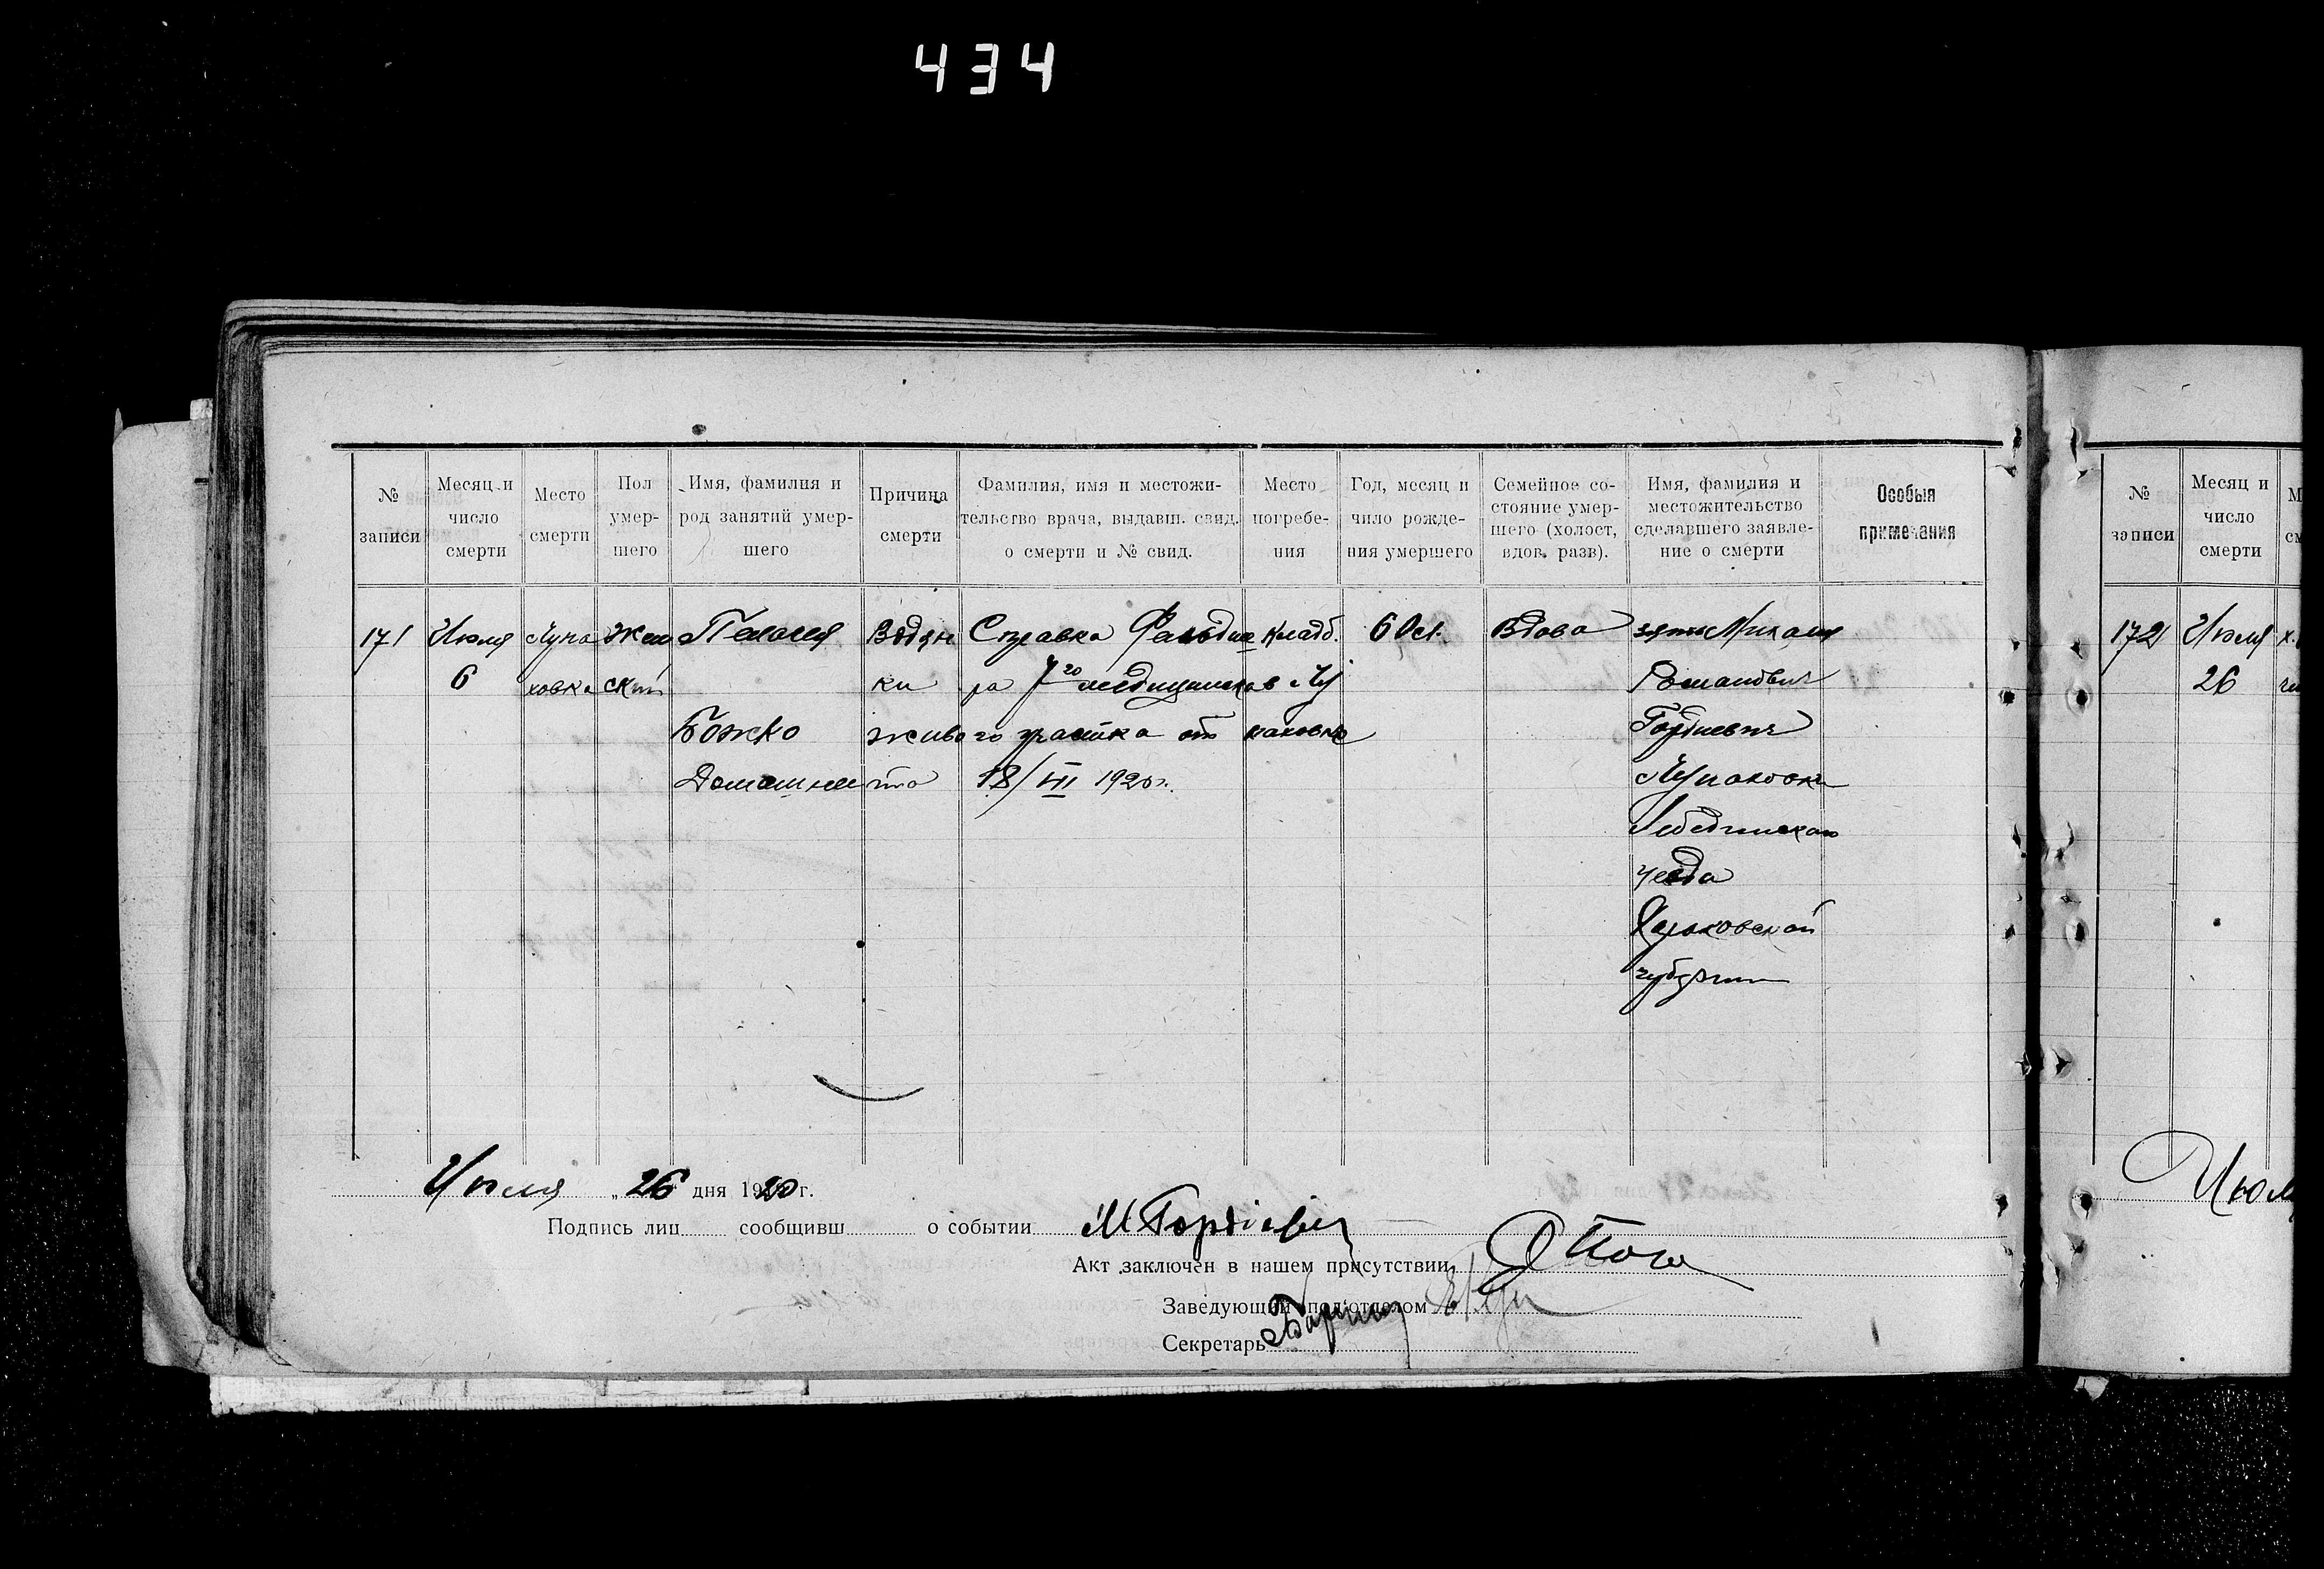 434
№ записи
Месяц и число смерти
Место смерти
Пол умер-
шего
Имя, фамилия и
род занятий умер-
шего
Причина смерти
Фамилия, имя и местожи-
тельство врача, выдавш. свид.
о смерти и № свид.
Место
погребе-
ния
Год, месяц и
число рожде-
ния умершего
Семейное со-
стояние умер-
шего (холост,
вдов. разв).
Имя, фамилия и
местожительство
сделавшего заявле-
ние о смерти
Особыя
примечания
171
Июля
6
Луча
ховка
Жен
ский
Пелагея
Божко
Домашнее
Водян
ки
живо
та
Справка Фельдше
ра 7го медицинск
го участка от
18/VII 1920 г.
Кладб.
60 л.
Вдова
зять Михаил
Романович
Гордиевич
Лебединскаго
уезда
Харьковской
губернии
Июля „ 26 дня 1920 г.
Подпись лиц сообщивш о событии М Гордіевич
Акт заключен в нашем присутствии
Заведующий под'отделом
Секретарь
№
записи
Месяц и
число
смерти
172
Июля
26
Июл